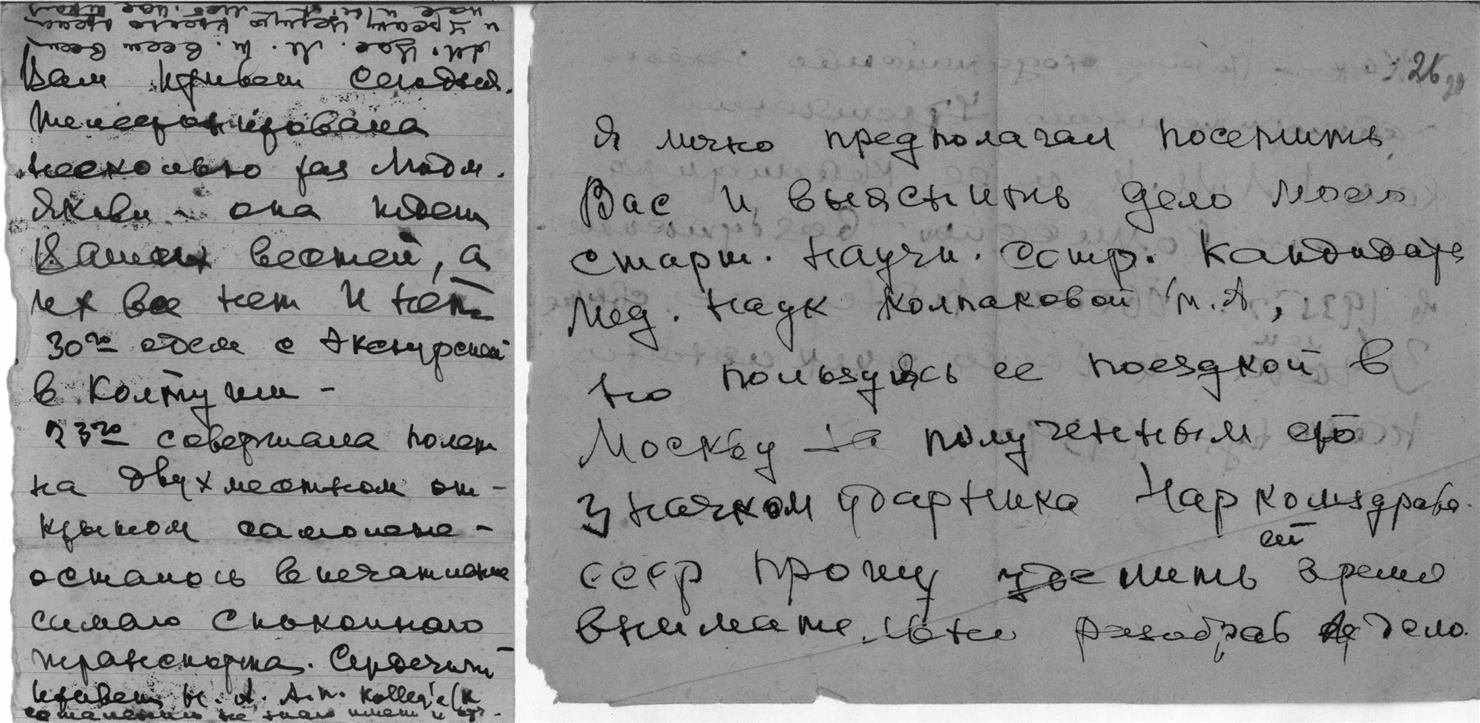 Вам привет сегодня.
телефонировала
несколько раз Людм.
Якевн - она ждет
Ваших вестей, а
их все нет и нет
30го едем с экскурсией
в Колтуши -
23го совершала полет
на двухместном от-
крытом самолете -
осталось впечатление
самого спокойного
транспорта. Сердечный
привет
не знаю имени и отч.
26
Я лично предполагал посетить
Вас и выяснить дело моего
старш. научн. сотр. Кандидата
мед. наук Колпаковой М. А,
но пользуясь ее поездкой в
Москву за полученным ею
значком ударника Наркомздрава
СССР прошу уделить ей время
внимательно разобрав дело.